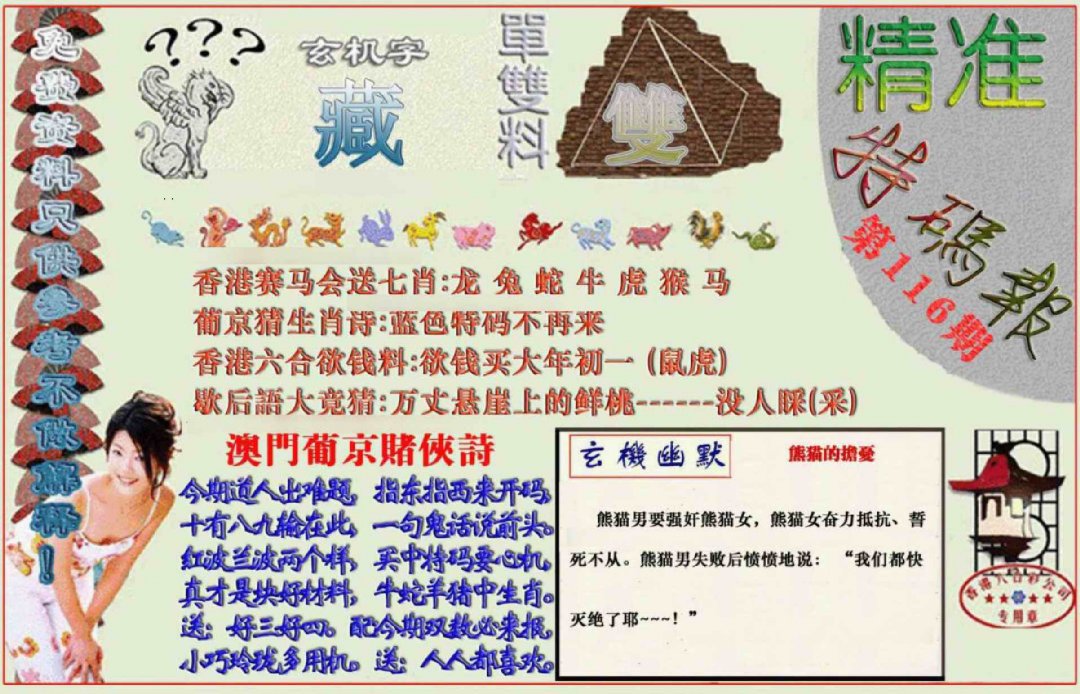 免费资料只供参考不做解释！
???
玄机字
藏
單雙料
雙
精准
特碼報
第116期
香港赛马会送七肖:龙 兔 蛇 牛 虎 猴 马
葡京猜生肖诗:蓝色特码不再来
香港六合欲钱料:欲钱买大年初一 (鼠虎)
歇后語大竞猜:万丈悬崖上的鲜桃------没人睬(采)
澳門葡京賭俠詩
今期道人出难题，指东指西来开码。
十有八九输在此，一句鬼话说前头。
红波兰波两个样，买中特码要心机，
真才是块好材料，牛蛇羊猪中生肖。
送：好三好四。配今期双数必来报。
小巧玲珑多用机。送：人人都喜欢。
玄機幽默
熊猫的擔憂
熊猫男要强奸熊猫女，熊猫女奋力抵抗、誓
死不从。熊猫男失败后愤愤地说：“我们都快
灭绝了耶~~~！”
香港六合彩公司
专用章